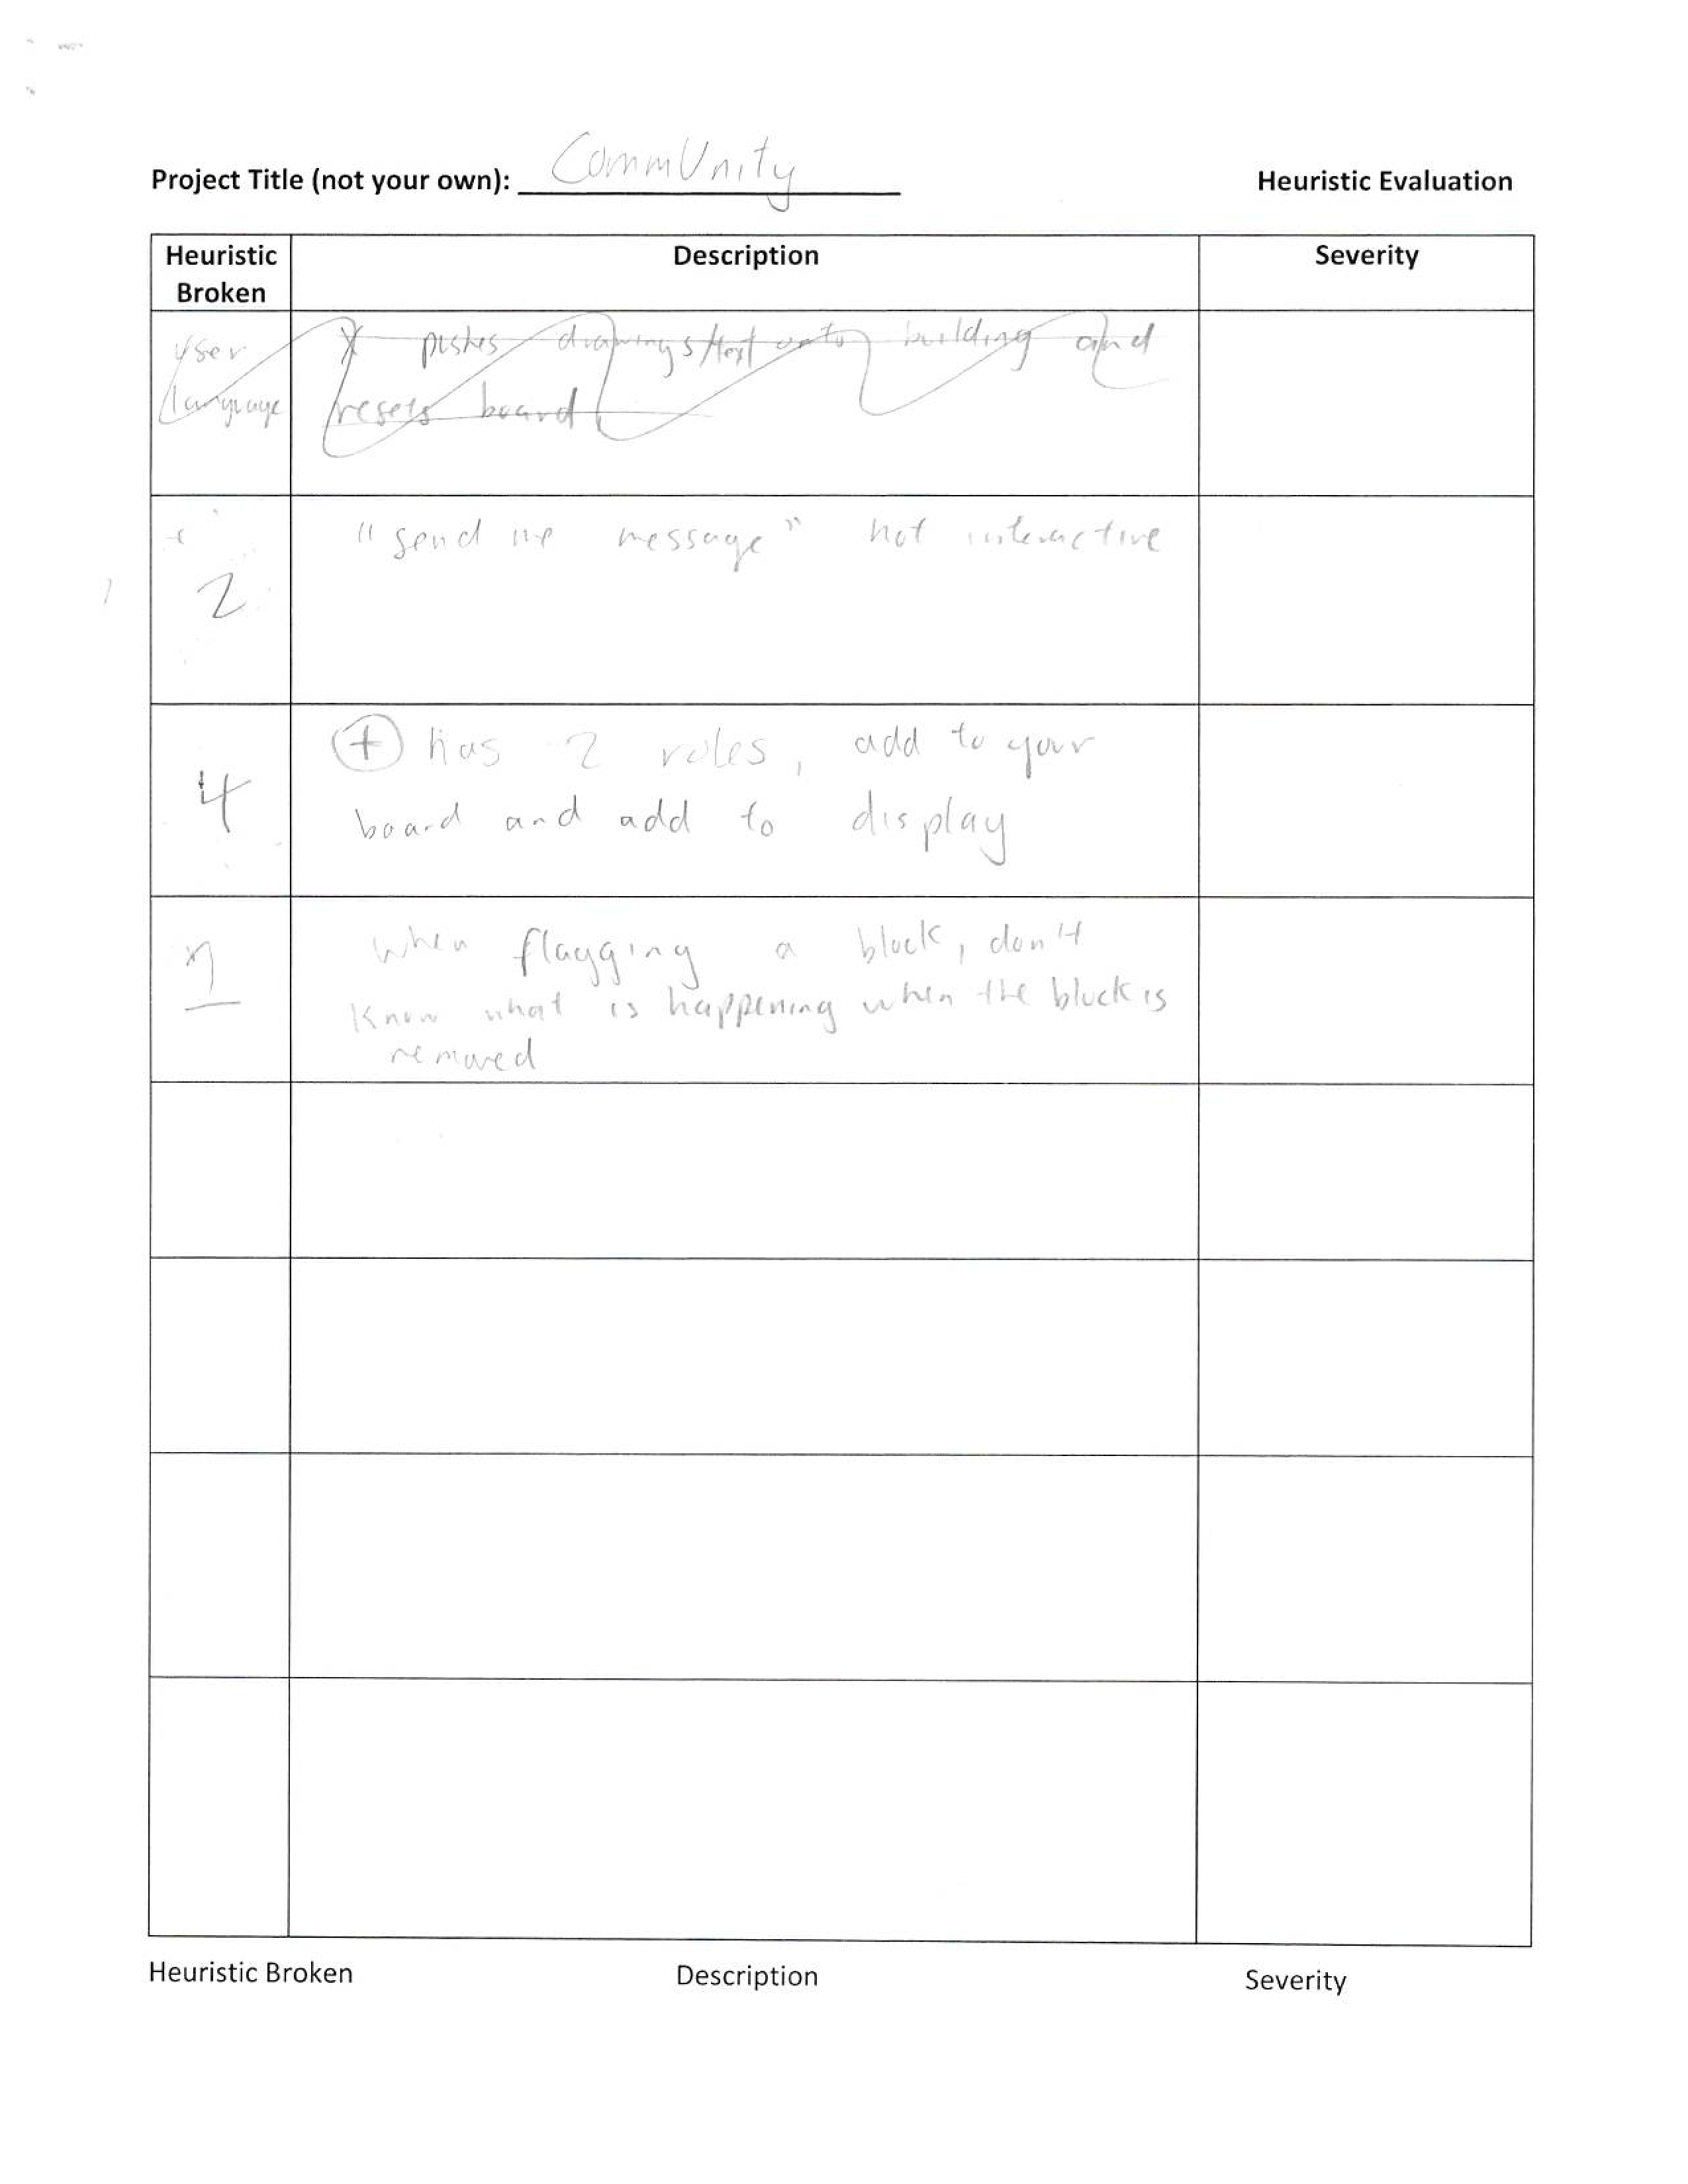 Project Title (not your own): CommUnity
Heuristic Evaluation
Heuristic Broken
Description
Severity
User
language
X pushes drawings/text onto building and
resets board
2
"send me message" not interactive
4
+ has 2 roles, add to your
board and add to display
1
When flagging a block, don't
know what is happening when the block is
removed
Heuristic Broken
Description
Severity